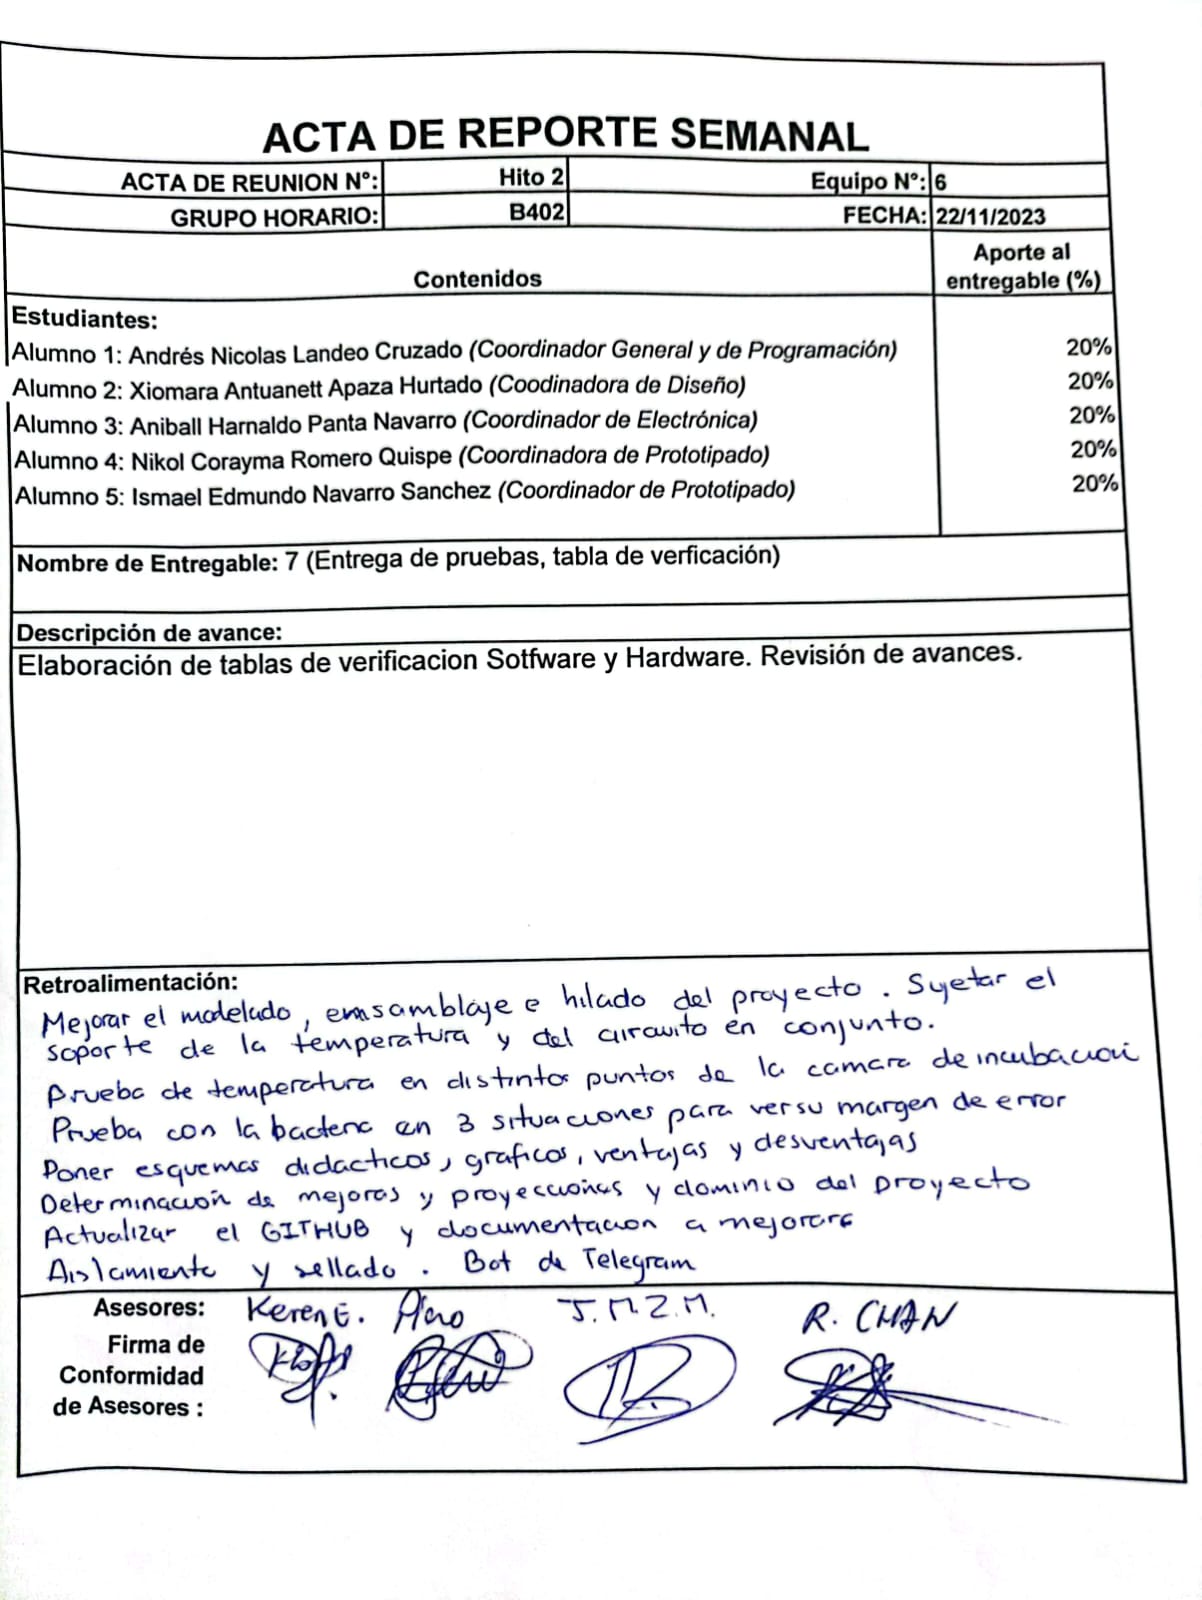 ACTA DE REPORTE SEMANAL
ACTA DE REUNION N°: Hito 2 Equipo N°: 6
GRUPO HORARIO: B402 FECHA: 22/11/2023
Contenidos Aporte al entregable (%)
Estudiantes:
Alumno 1: Andrés Nicolas Landeo Cruzado (Coordinador General y de Programación) 20%
Alumno 2: Xiomara Antuanett Apaza Hurtado (Coodinadora de Diseño) 20%
Alumno 3: Aniball Harnaldo Panta Navarro (Coordinador de Electrónica) 20%
Alumno 4: Nikol Corayma Romero Quispe (Coordinadora de Prototipado) 20%
Alumno 5: Ismael Edmundo Navarro Sanchez (Coordinador de Prototipado) 20%
Nombre de Entregable: 7 (Entrega de pruebas, tabla de verficación)
Descripción de avance:
Elaboración de tablas de verificacion Sotfware y Hardware. Revisión de avances.
Retroalimentación:
Mejorar el modelado, emsamblaje e hilado del proyecto. Sujetar el
soporte de la temperatura y del circuito en conjunto.
Prueba de temperatura en distintos puntos de la camara de incubación
Prueba con la bacteria en 3 situaciones para ver su margen de error
Poner esquemas didacticos, graficos, ventajas y desventajas
Determinación de mejoras y proyecciones y dominio del proyecto
Actualizar el GITHUB y documentacion a mejorara
Aislamiento y sellado. Bot de Telegram
Asesores: Keren E. J.M.Z.M. R. CHAN
Firma de
Conformidad
de Asesores :